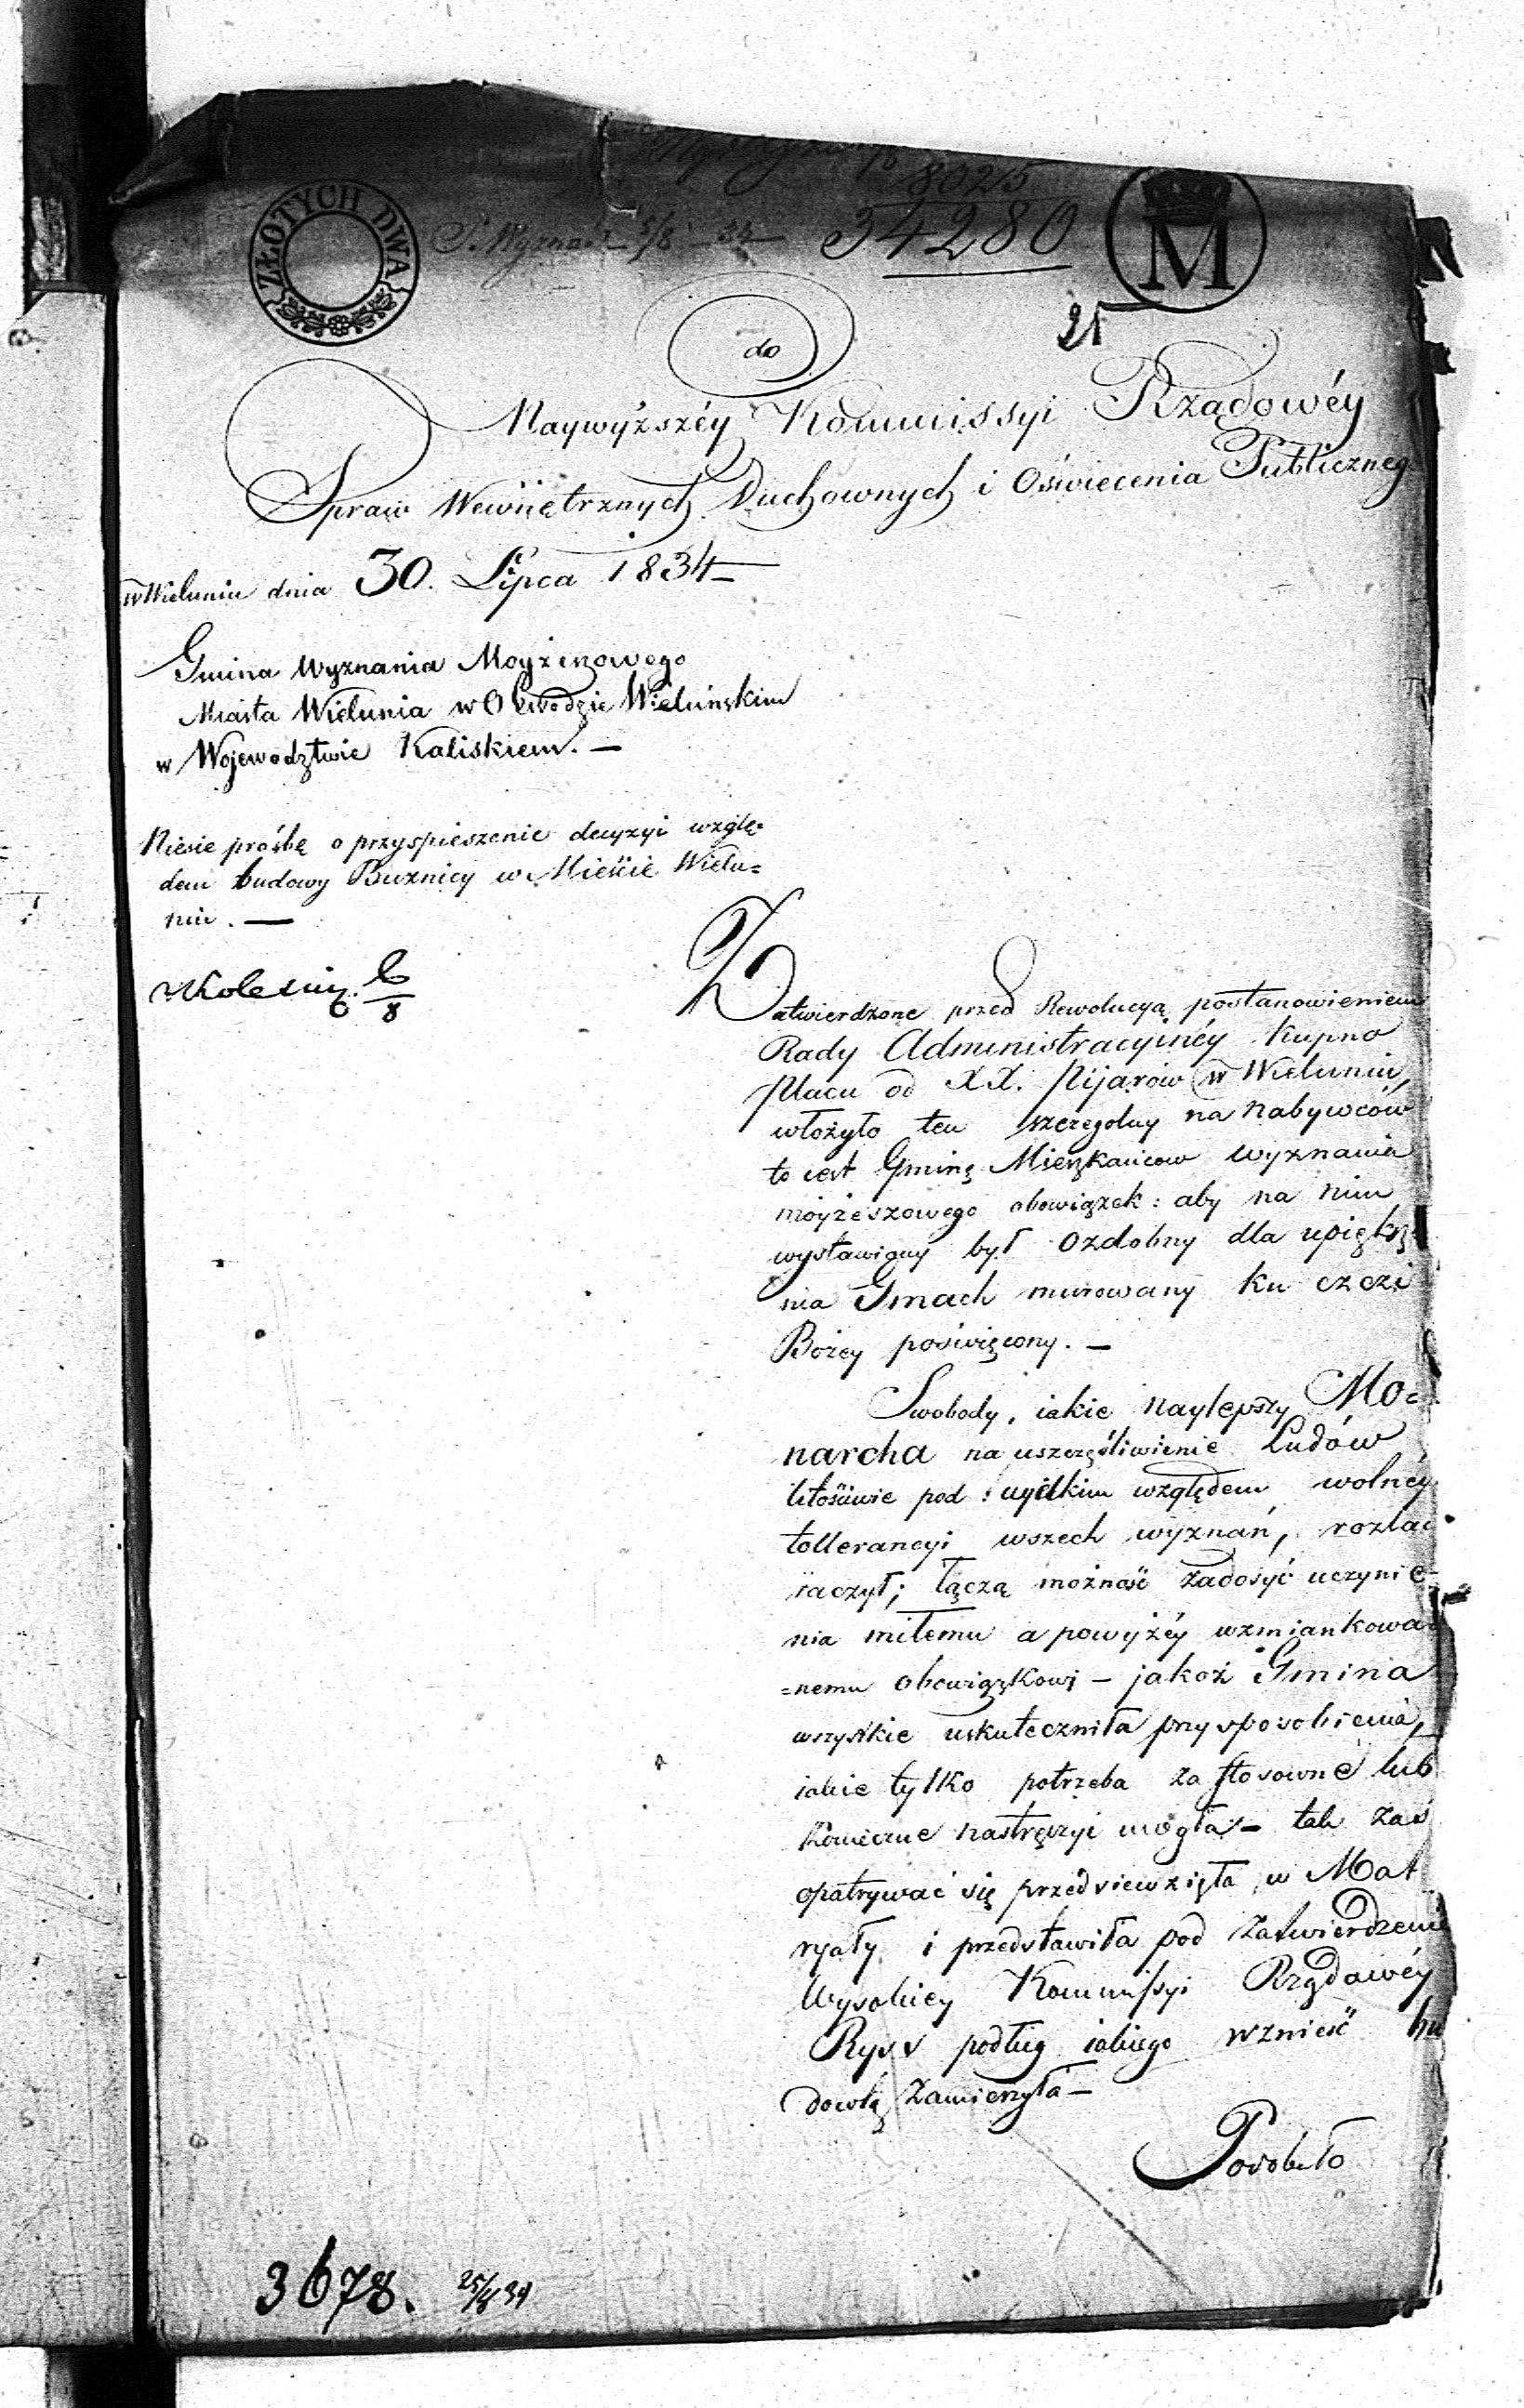 8025
ZŁOTYCH DWA
34280
M
do
Naywyższéy Kommissyi Rządowéy
Spraw Wewnętrznych Duchownych i Oświecenia Publicznego
w Wieluniu dnia 30. Lipca 1834
Gmina Wyznania Moyżeszowego
Miasta Wielunia w Obwodzie Wieluńskim
w Wojewodztwie Kaliskiem. —
Niesie prośbę o przyspieszenie decyzyi wzglę=
dem budowy Bużnicy w Mieście Wielu=
niu. —
Zatwierdzone przed Rewolucyą postanowieniem
Rady Administracyinéy Kupno
Placu od XX. Pijarów w Wieluniu,
włożyło ten szczegolny na nabywców
to iest Gminę Mieszkańcow wyznania
moyżeszowego obowiązek: aby na nim
wystawiony był ozdobny dla upiększ
nia Gmach murowany ku czczi
Bożey poświęcony. —
Swobody, iakie Naylepszy Mo=
narcha na uszczęśliwienie Ludów
litościwie pod względem wolnéy
tollerancyi wszech wyznań, rozla
raczył; łączą możność zadosyć uczynie-
nia miłemu a powyżéy wzmiankowa
=nemu obowiązkowi – jakoż Gmina
wszystkie uskuteczniła przysposobienia,
iakie tylko potrzeba za stosowne lub
konieczne nastręczyć mogła – tak zaś
opatrywać się przedsiewzięła w Mat
ryały i przedstawiła pod zatwierdzenie
Wysokiey Kommissyi Rządowéy
Ryss podług iakiego wznieść bu
dowlą zamierzyła –
Podobało
3678. 25/8 34